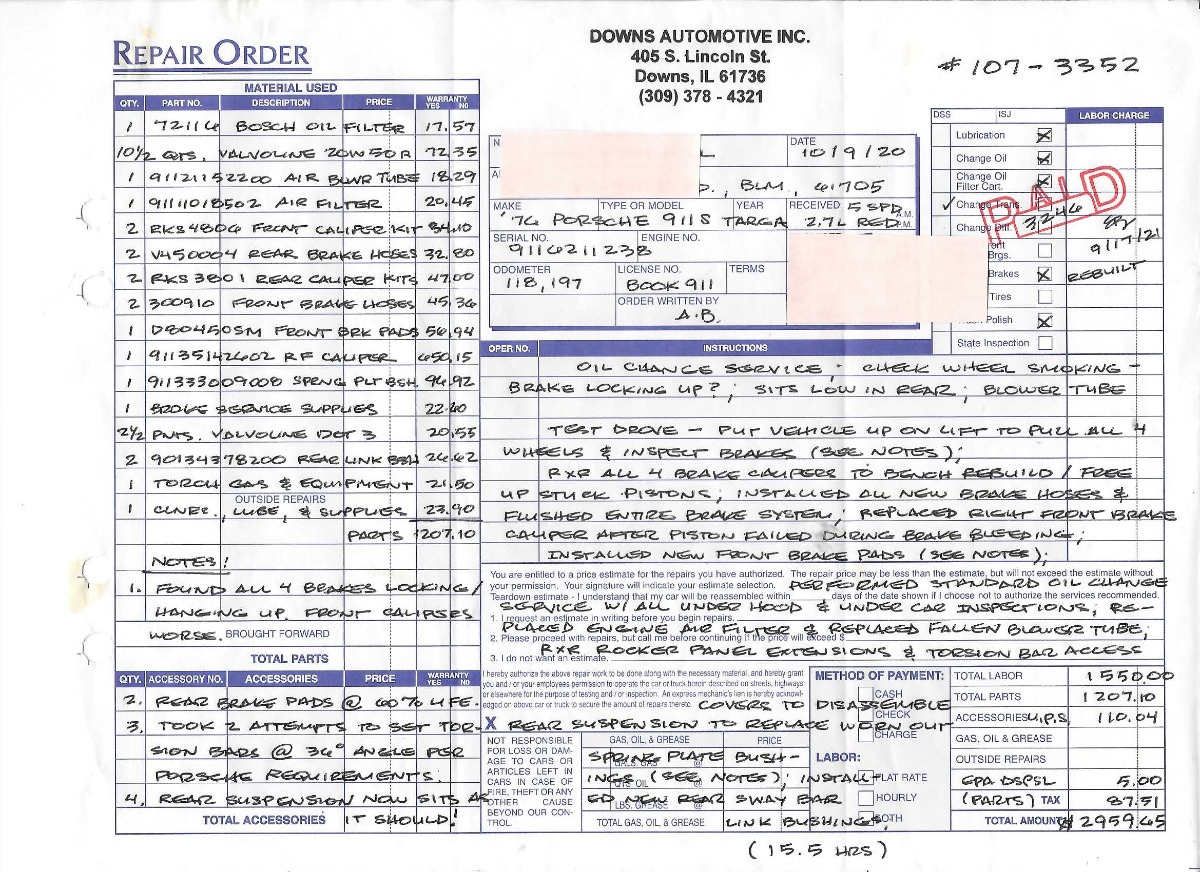 REPAIR ORDER
DOWNS AUTOMOTIVE INC.
405 S. Lincoln St.
Downs, IL 61736
(309) 378 - 4321
# 107-3352
MATERIAL USED
QTY. PART NO. DESCRIPTION PRICE WARRANTY YES NO
1 72114 BOSCH OIL FILTER 17.57
10 1/2 QTS. VALVOLINE 20W50R 72.35
1 91121152200 AIR BLWR TUBE 18.29
1 91111018502 AIR FILTER 20.45
2 RKS4806 FRONT CALIPER KIT 84.10
2 VH450004 REAR BRAKE HOSES 32.80
2 RKS3801 REAR CALIPER KITS 47.00
2 300910 FRONT BRAKE HOSES 45.36
1 D80450SM FRONT BRK PADS 56.94
1 91135142602 RF CALIPER 650.15
1 911333009008 SPRNG PLT BSH 94.92
1 BRAKE SERVICE SUPPLIES 22.60
2 1/2 PNTS. VALVOLINE DOT 3 20.55
2 90134378200 REAR LINK BSH 26.62
1 TORCH GAS & EQUIPMENT 21.50
OUTSIDE REPAIRS
1 CLNER., LUBE, & SUPPLIES 23.90
PARTS 1207.10
NOTES!
1. FOUND ALL 4 BRAKES LOCKING/
HANGING UP. FRONT CALIPERS
WORSE. BROUGHT FORWARD
TOTAL PARTS
QTY. ACCESSORY NO. ACCESSORIES PRICE WARRANTY YES NO
2. REAR BRAKE PADS @ 60% LIFE.
3. TOOK 2 ATTEMPTS TO SET TOR-
SION BARS @ 36° ANGLE PER
PORSCHE REQUIREMENTS.
4. REAR SUSPENSION NOW SITS AS
TOTAL ACCESSORIES IT SHOULD!
N L DATE 10/9/20
A D., BLM, 61705
MAKE TYPE OR MODEL YEAR RECEIVED 5 SPD A.M.
'76 PORSCHE 911S TARGA 2.7L RED P.M.
SERIAL NO. ENGINE NO.
9116211238
ODOMETER LICENSE NO. TERMS
118,197 BOOK 911
ORDER WRITTEN BY
A.B.
DSS ISJ LABOR CHARGE
Lubrication
Change Oil
Change Oil
Filter Cart.
✓ Change Trans.
Change Diff
Brgs.
Brakes REBUILT
Tires
Polish
State Inspection
PAID
3246
9/17/21
OPER NO. INSTRUCTIONS
OIL CHANGE SERVICE; CHECK WHEEL SMOKING -
BRAKE LOCKING UP?; SITS LOW IN REAR; BLOWER TUBE
TEST DROVE - PUT VEHICLE UP ON LIFT TO PULL ALL 4
WHEELS & INSPECT BRAKES (SEE NOTES);
RXR ALL 4 BRAKE CALIPERS TO BENCH REBUILD / FREE
UP STUCK PISTONS; INSTALLED ALL NEW BRAKE HOSES &
FLUSHED ENTIRE BRAKE SYSTEM; REPLACED RIGHT FRONT BRAKE
CALIPER AFTER PISTON FAILED DURING BRAKE BLEEDING;
INSTALLED NEW FRONT BRAKE PADS (SEE NOTES);
You are entitled to a price estimate for the repairs you have authorized. The repair price may be less than the estimate, but will not exceed the estimate without
your permission. Your signature will indicate your estimate selection. PERFORMED STANDARD OIL CHANGE
Teardown estimate - I understand that my car will be reassembled within days of the date shown if I choose not to authorize the services recommended.
SERVICE W/ ALL UNDER HOOD & UNDER CAR INSPECTIONS; RE-
1. I request an estimate in writing before you begin repairs.
PLACED ENGINE AIR FILTER & REPLACED FALLEN BLOWER TUBE;
2. Please proceed with repairs, but call me before continuing if the price will exceed $
RXR ROCKER PANEL EXTENSIONS & TORSION BAR ACCESS
3. I do not want an estimate.
I hereby authorize the above repair work to be done along with the necessary material, and hereby grant
you and / or your employees permission to operate the car or truck herein described on streets, highways
or elsewhere for the purpose of testing and / or inspection. An express mechanic's lien is hereby acknowl-
edged on above car or truck to secure the amount of repairs thereto. COVERS TO DISASSEMBLE
X REAR SUSPENSION TO REPLACE WORN OUT
NOT RESPONSIBLE
FOR LOSS OR DAM-
AGE TO CARS OR
ARTICLES LEFT IN
CARS IN CASE OF
FIRE, THEFT OR ANY
OTHER CAUSE
BEYOND OUR CON-
TROL.
GAS, OIL & GREASE PRICE
SPRING PLATE BUSH-
GALS. GAS @
INGS (SEE NOTES); INSTALL-
QTS. OIL @
ED NEW REAR SWAY BAR
LBS. GREASE @
TOTAL GAS, OIL & GREASE LINK BUSHINGS.
(15.5 HRS)
METHOD OF PAYMENT:
CASH
CHECK
CHARGE
LABOR:
FLAT RATE
HOURLY
BOTH
TOTAL LABOR 1550.00
TOTAL PARTS 1207.10
ACCESSORIES U.P.S. 110.04
GAS, OIL & GREASE
OUTSIDE REPAIRS
EPA DSPSL 5.00
(PARTS) TAX 87.51
TOTAL AMOUNT $2959.65